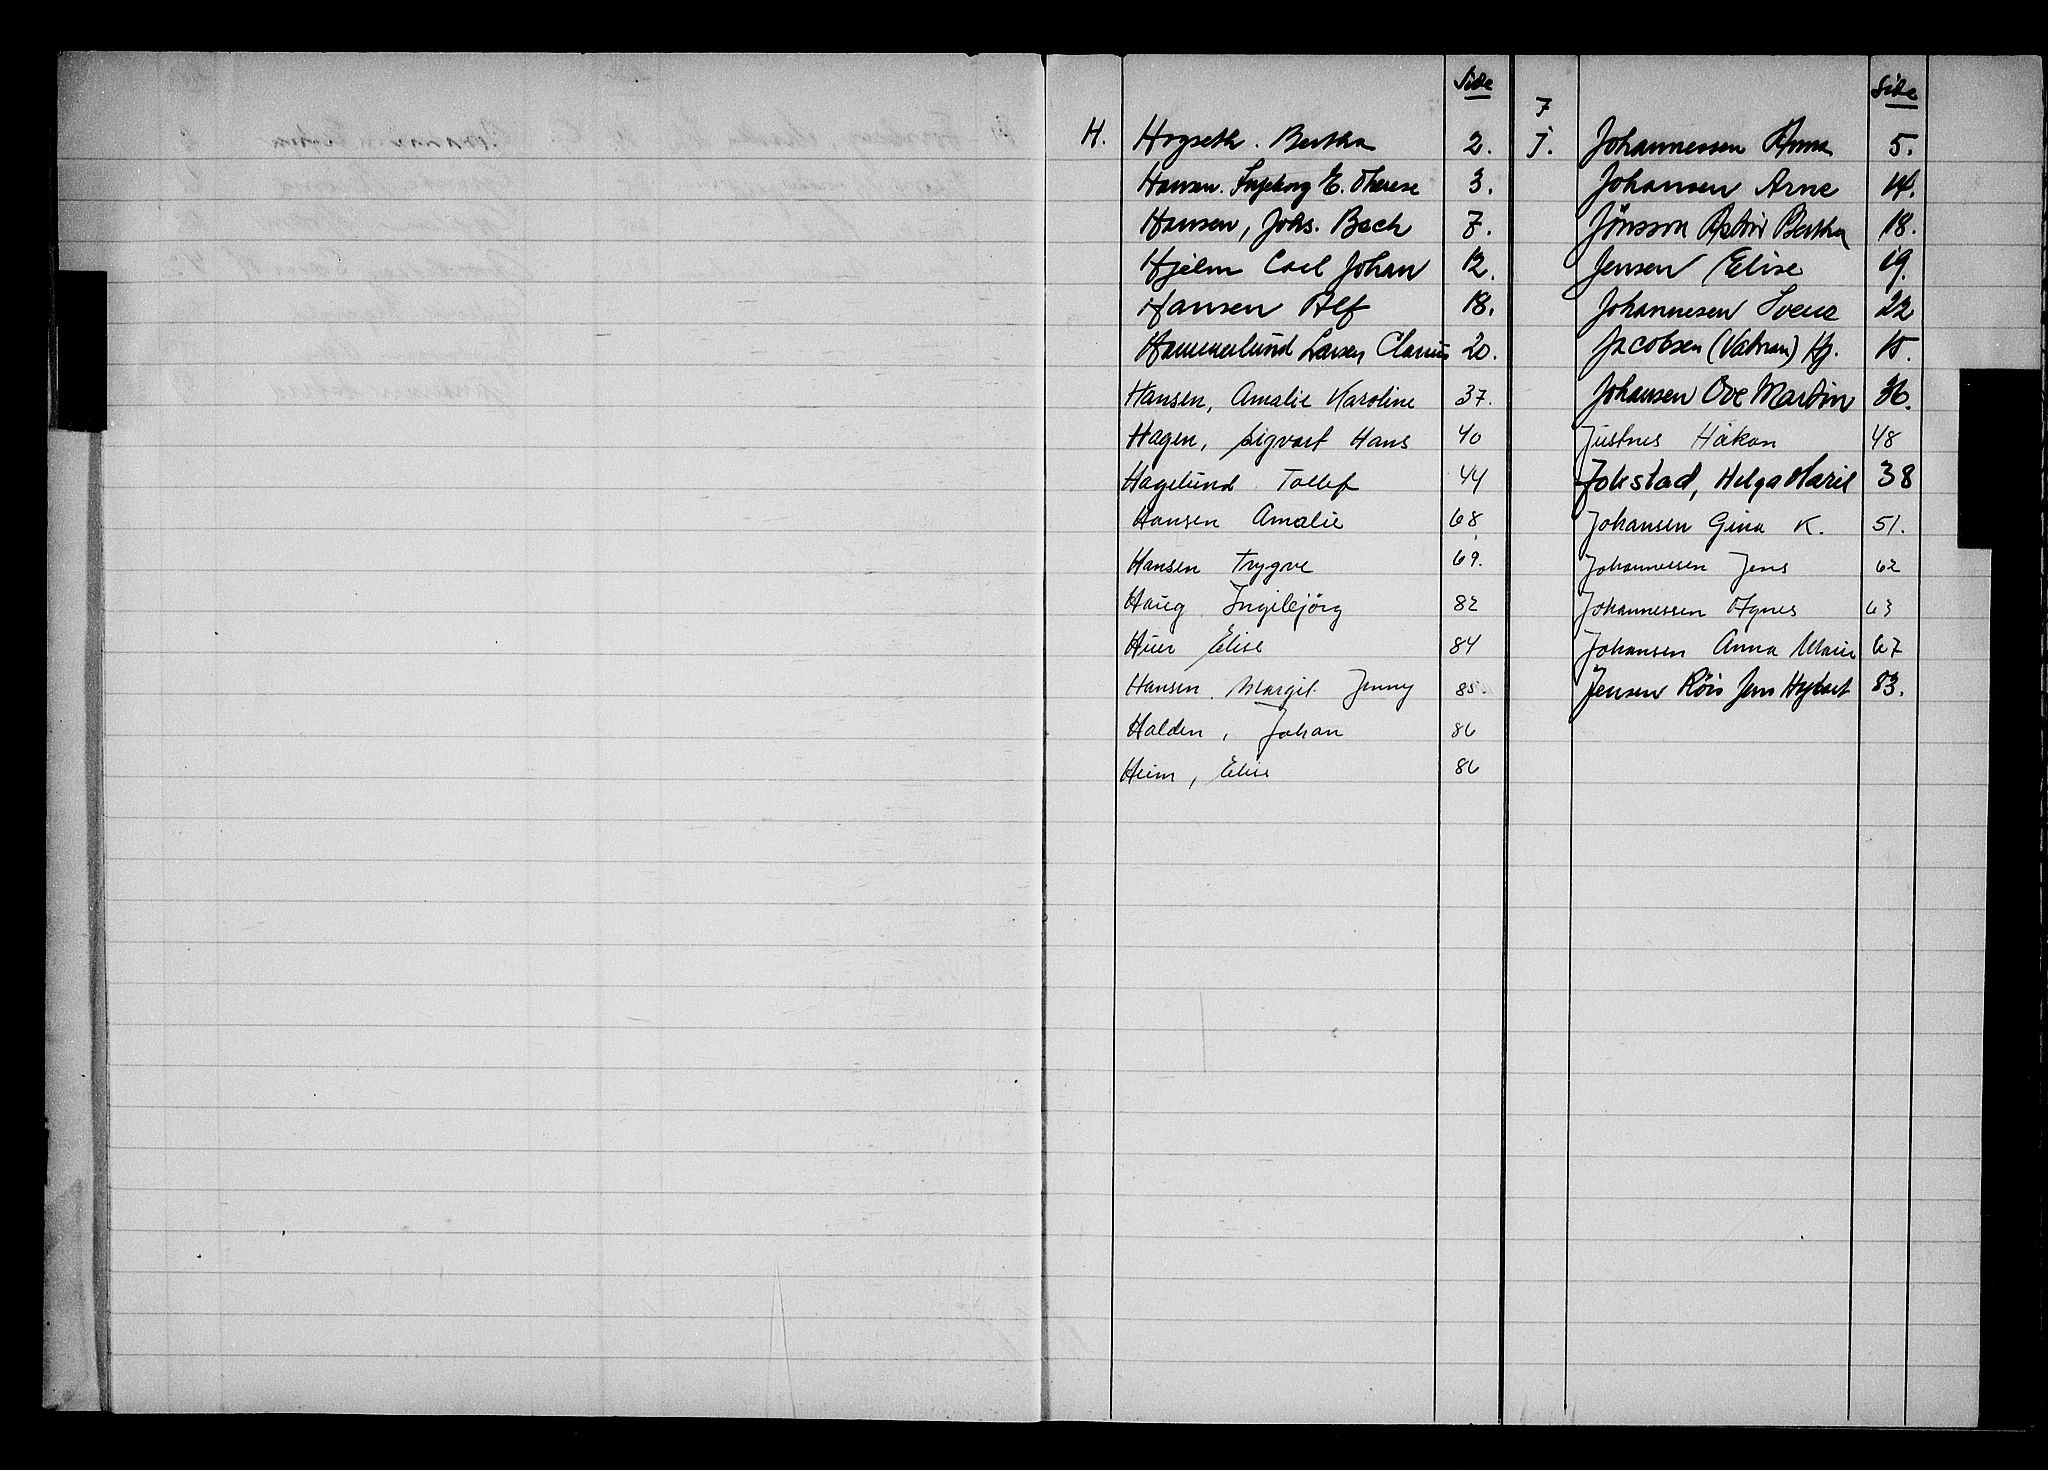 Side
H. Høyseth. Bertha 2.
Hansen. Ingeborg E. Therese 3.
Hansen, Johs. Bech 7.
Hjelm Carl Johan 12.
Hansen Alf 18.
Hammerlund Larsen Clarius 20.
Hansen, Amalie Karoline 37.
Hagen, Sigvart Hans 40
Hagelund Tollef 44
Hansen Amalie 68
Hansen Trygve 69.
Haug Ingibjörg 82
Huer Elise 84
Hansen. Margit Jenny 85
Halden, Johan 86
Heim, Elise 86
Side
J. Johannessen Anna 5.
Johansen Arne 14.
Jönsson Bertha 18.
Jensen Elise 19.
Johannesen Svend 22
Jacobsen (Vatran) Hj. 15.
Johansen Ove Martin 36.
Justnes Håkon 48
Jokstad, Helga Marie 38
Johansen Gina K. 51.
Johannessen Jens 62
Johannessen Agnes 63
Johansen Anna Marie 67
Jensen Röis Jens 83.